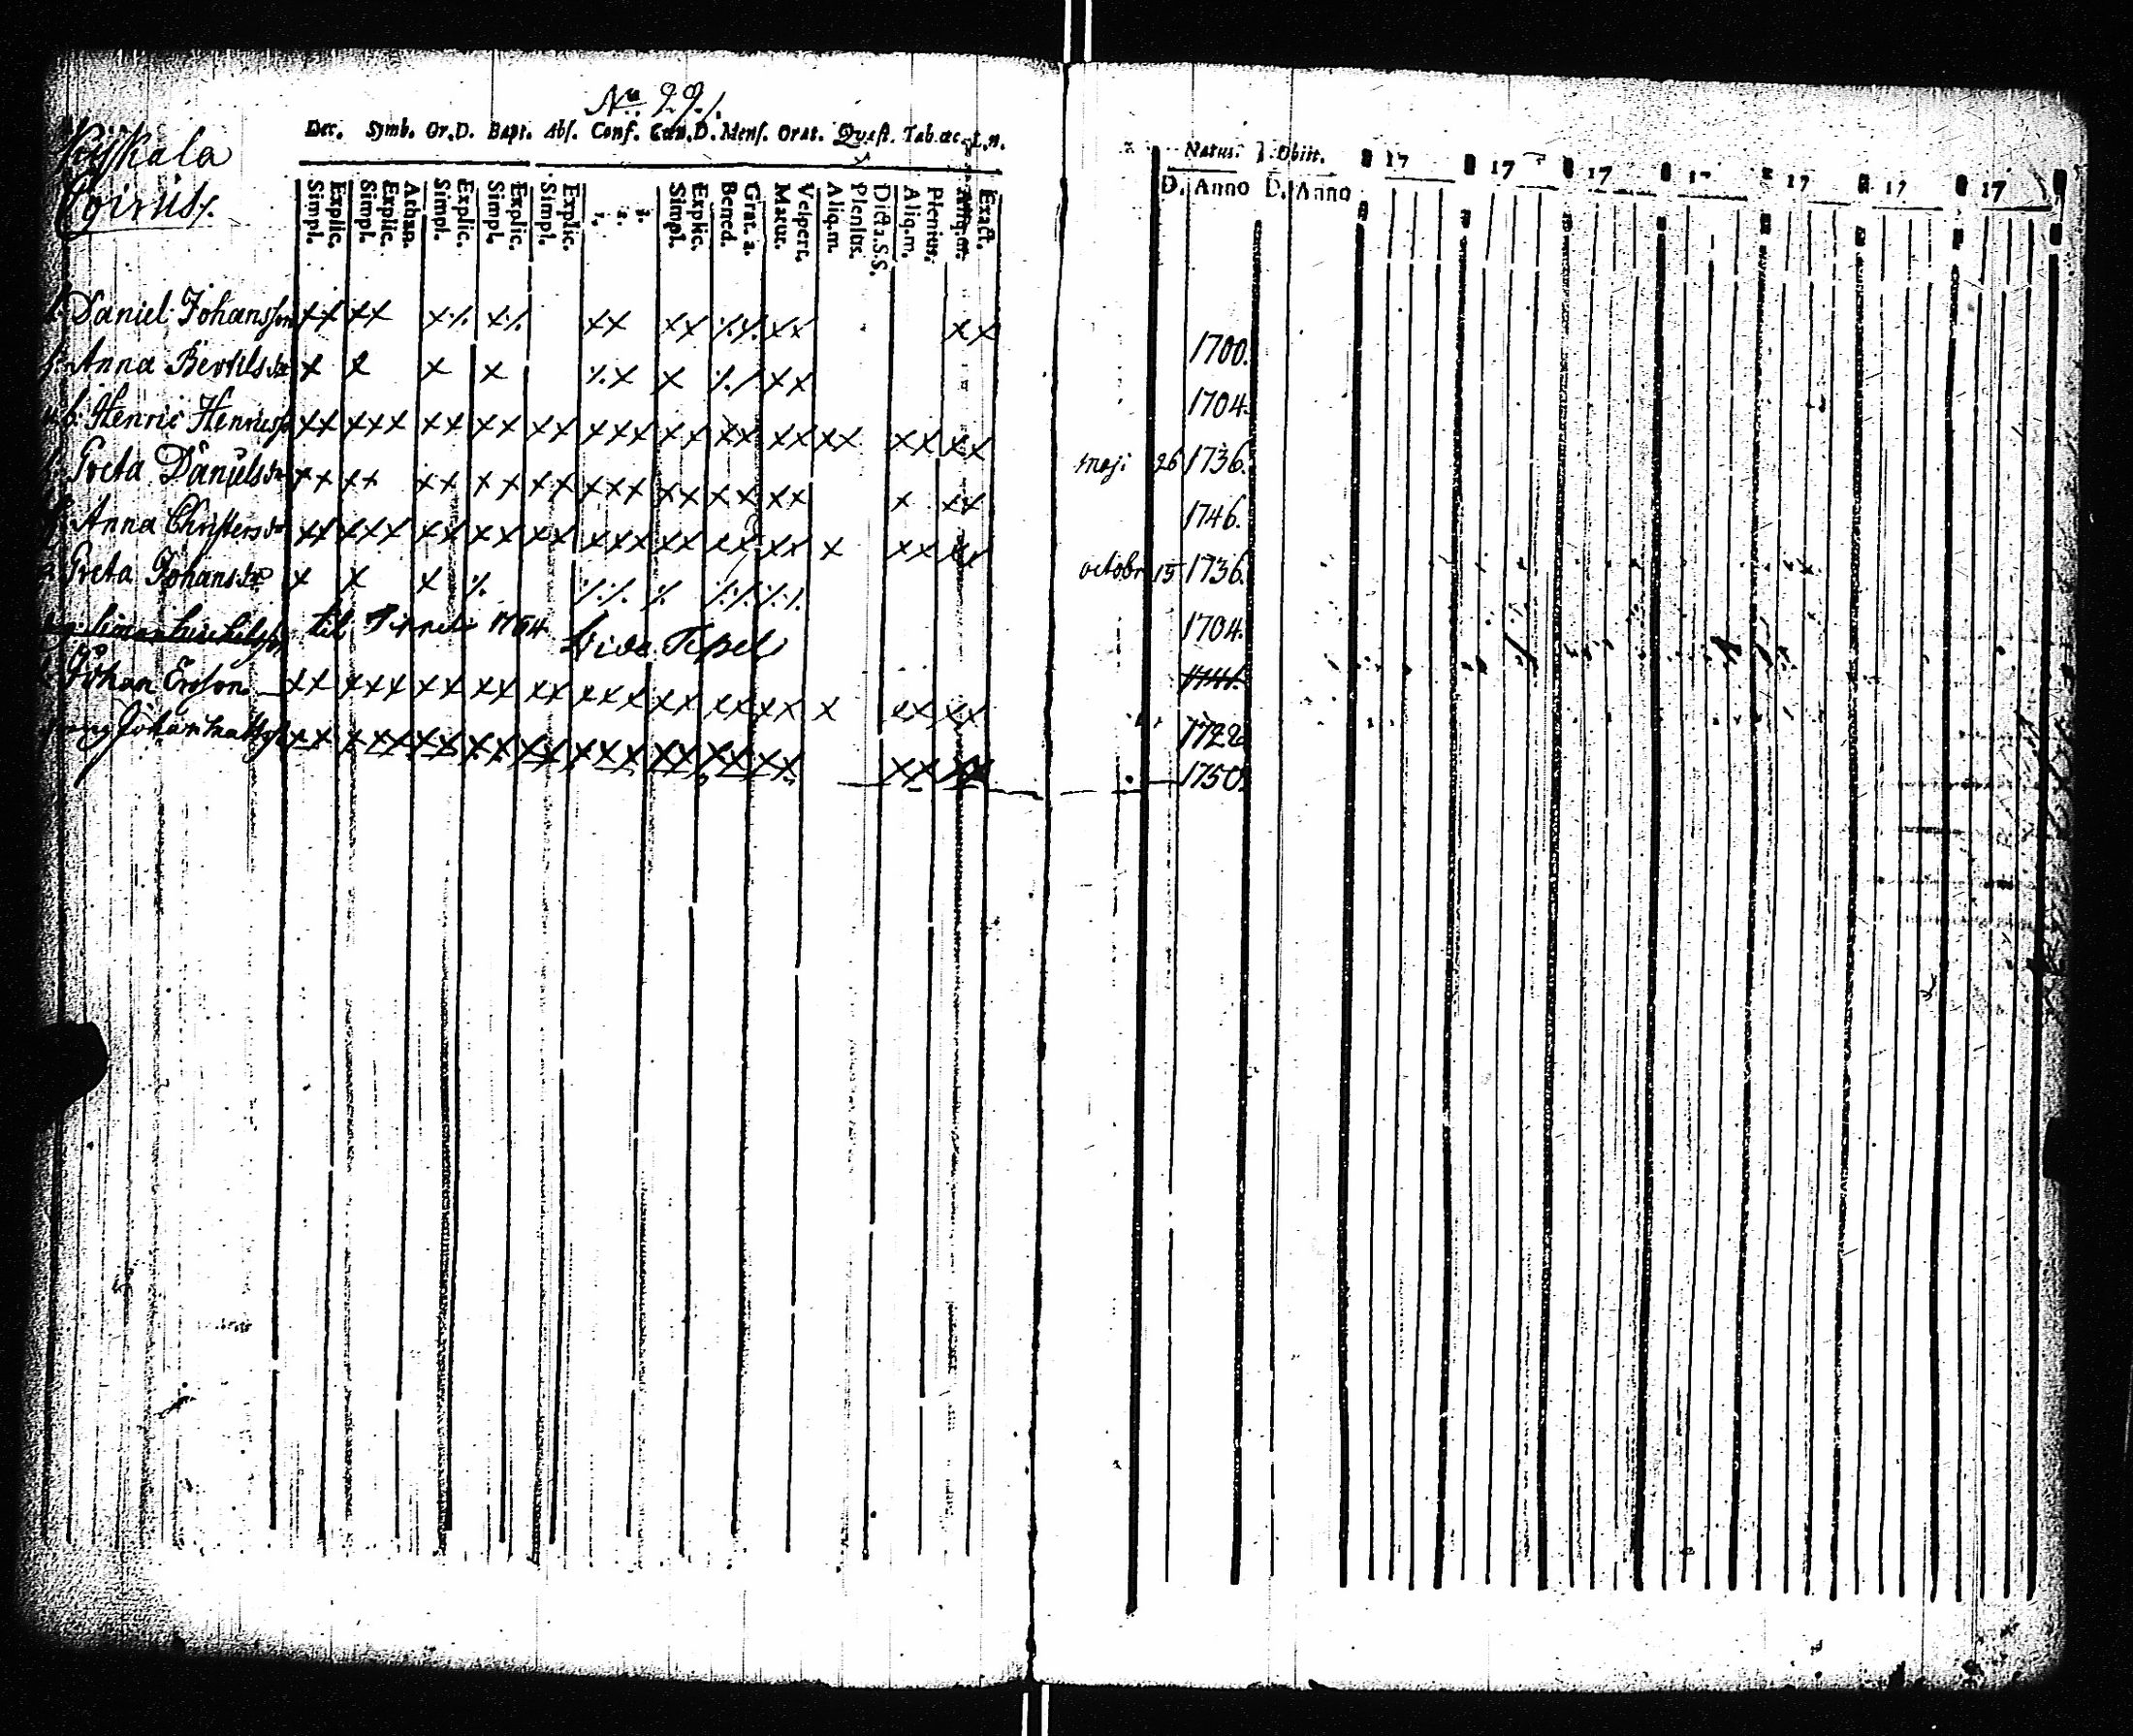 No. 29./.
Kijskala
Coirris/.
Dec. Symb. Or.D. Bapt. Abs. Conf. Cœn.D. Mens. Orat. Quæst. Tab.œc. L.n.
Simpl. Explic. Simpl. Explic. Athan. Simpl. Explic. Simpl. Explic. Simpl. Explic. 1. 2. 3. Simpl. Explic. Bened. Grat. a. Matut. Vespert. Aliq.m. Plenius. Dicta S.S. Aliq.m. Plenius. Aliq.m. Exact.
Natus. Obiit. 17 17 17 17 17 17 17
D. Anno D. Anno
Daniel Johansson xx xx x ·/. x ·/. xx xx ·/. ·/. xx xx 1700.
Anna Bertilsdr x x x x ·/. x x ·/. / xx 1704.
Henric Henricss xx xxx xx xx xx xxx xx xx xx xx xx xx maji 26 1736.
Greta Danielsdr xx xx xx xx xx xxx xx xx xx x xx 1746.
Anna Christersdr xx xxx xx xx xx xxx xx xx xx x xx xx octobr 15 1736.
Greta Johansdr x x x ·/. ·/. ·/. ·/. ·/. ·/. ·/. ·/. 1704.
til 1764 vide
Johan Ersson xx xxx xx xx xx xxx xx xx xx x xx xx 1722
Johan Mattss xx xxx xx xx xx xxx xx xx xx xx xx 1750.